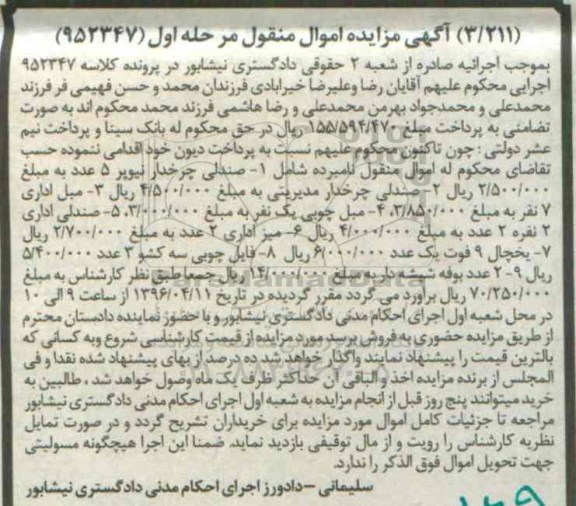 (۳/۲۱۱) آگهی مزایده اموال منقول مرحله اول (۹۵۲۳۴۷)
بموجب اجرائیه صادره از شعبه ۲ حقوقی دادگستری نیشابور در پرونده کلاسه ۹۵۲۳۴۷
اجرایی محکوم علیهم آقایان رضا وعلیرضا خیرابادی فرزندان محمد و حسن فهیمی فر فرزند
محمدعلی و محمدجواد بهرمن محمدعلی و رضا هاشمی فرزند محمد محکوم اند به صورت
تضامنی به پرداخت مبلغ ۱۵۵/۵۹۴/۴۷۰ ریال در حق محکوم له بانک سینا و پرداخت نیم
عشر دولتی : چون تاکنون محکوم علیهم نسبت به پرداخت دیون خود اقدامی ننموده حسب
تقاضای محکوم له اموال منقول نامبرده شامل ۱- صندلی چرخدار نیوپر ۵ عدد به مبلغ
۲/۵۰۰/۰۰۰ ریال ۲- صندلی چرخدار مدیریتی به مبلغ ۴/۵۰۰/۰۰۰ ریال ۳- مبل اداری
۷ نفر به مبلغ ۳/۸۵۰/۰۰۰، ۴- مبل چوبی یک نفر به مبلغ ۳/۰۰۰/۰۰۰، ۵- صندلی اداری
۲ نفره ۲ عدد به مبلغ ۴/۰۰۰/۰۰۰ ریال ۶- میز اداری ۲ عدد به مبلغ ۲/۷۰۰/۰۰۰ ریال
۷- یخچال ۹ فوت یک عدد ۶/۰۰۰/۰۰۰ ریال ۸- فایل چوبی سه کشو ۳ عدد ۵/۴۰۰/۰۰۰
ریال ۹- ۲ عدد بوفه شیشه دار به مبلغ ۱۴/۰۰۰/۰۰۰ ریال جمعا طبق نظر کارشناس به مبلغ
۷۰/۳۵۰/۰۰۰ ریال براورد می گردد مقرر گردیده در تاریخ ۱۳۹۶/۰۴/۱۱ از ساعت ۹ الی ۱۰
در محل شعبه اول اجرای احکام مدنی دادگستری نیشابور و با حضور نماینده دادستان محترم
از طریق مزایده حضوری به فروش برسد مورد مزایده از قیمت کارشناسی شروع وبه کسانی که
بالترین قیمت را پیشنهاد نمایند واگذار خواهد شد ده درصد از بهای پیشنهاد شده نقدا و فی
المجلس از برنده مزایده اخذ و الباقی آن حداکثر ظرف یک ماه وصول خواهد شد ، طالبین به
خرید میتوانند پنج روز قبل از انجام مزایده به شعبه اول اجرای احکام مدنی دادگستری نیشابور
مراجعه تا جزئیات کامل اموال مورد مزایده برای خریداران تشریح گردد و در صورت تمایل
نظریه کارشناس را رویت و از مال توقیفی بازدید نماید. ضمنا این اجرا هیچگونه مسولیتی
جهت تحویل اموال فوق الذکر را ندارد.
سلیمانی - دادورز اجرای احکام مدنی دادگستری نیشابور